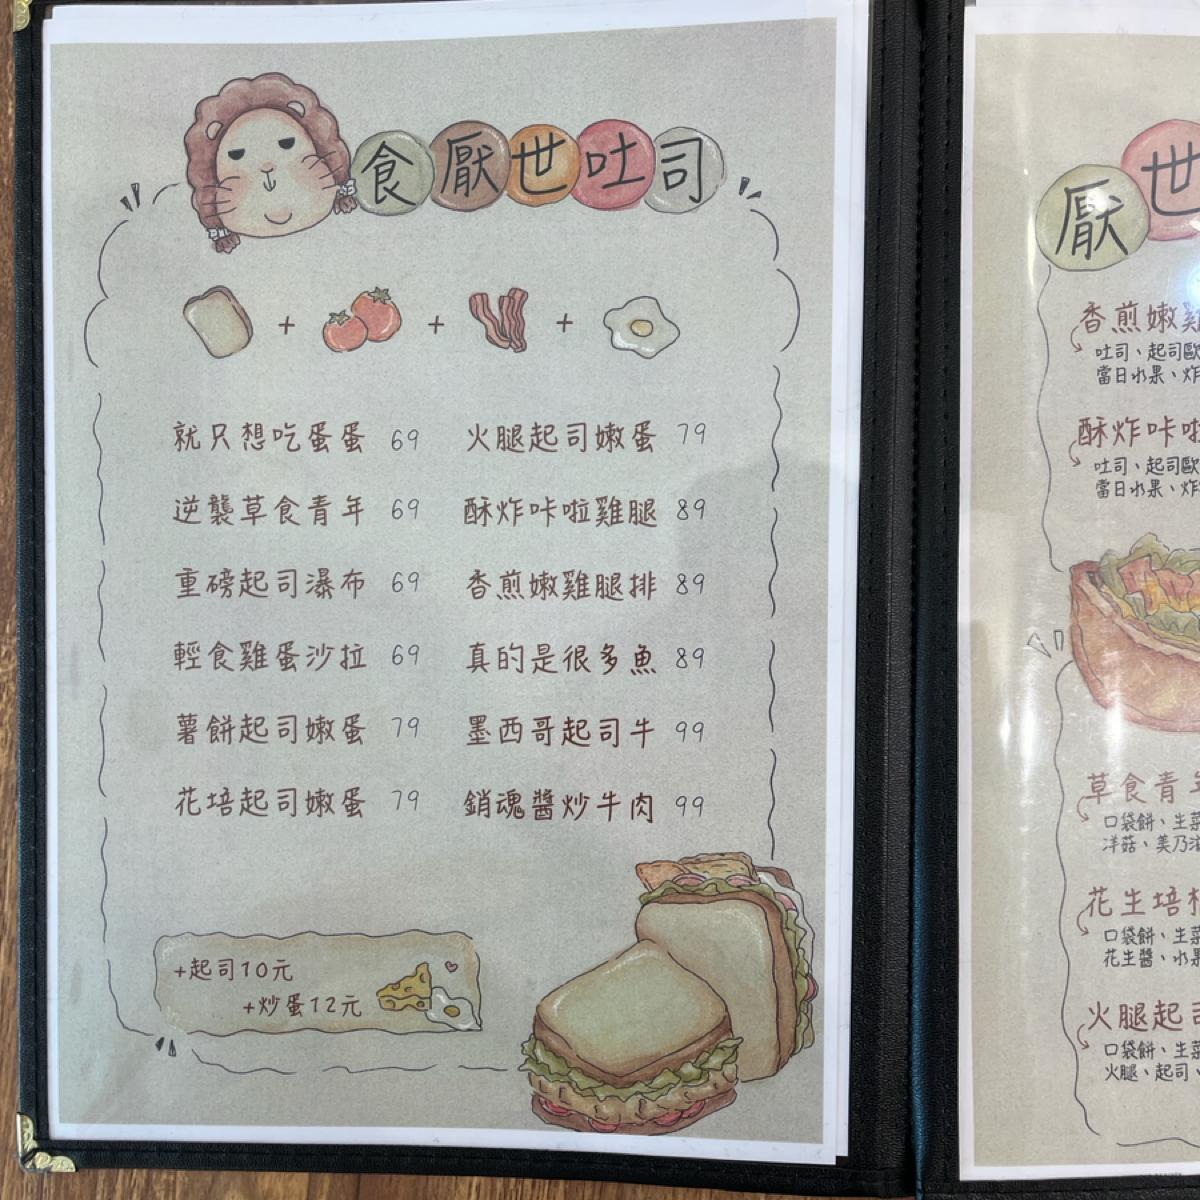 食厭世吐司
就只想吃蛋蛋 69
逆襲草食青年 69
重磅起司瀑布 69
輕食雞蛋沙拉 69
薯餅起司嫩蛋 79
花培起司嫩蛋 79
火腿起司嫩蛋 79
酥炸咔啦雞腿 89
香煎嫩雞腿排 89
真的是很多魚 89
墨西哥起司牛 99
銷魂醬炒牛肉 99
+起司10元
+炒蛋12元
厭世
香煎嫩雞
吐司、起司歐
當日水果、炸
酥炸咔啦
吐司、起司歐
當日水果、炸
草食青年
口袋餅、生菜
洋菇、美乃滋
花生培根
口袋餅、生菜
花生醬、水果
火腿起司
口袋餅、生菜
火腿、起司、